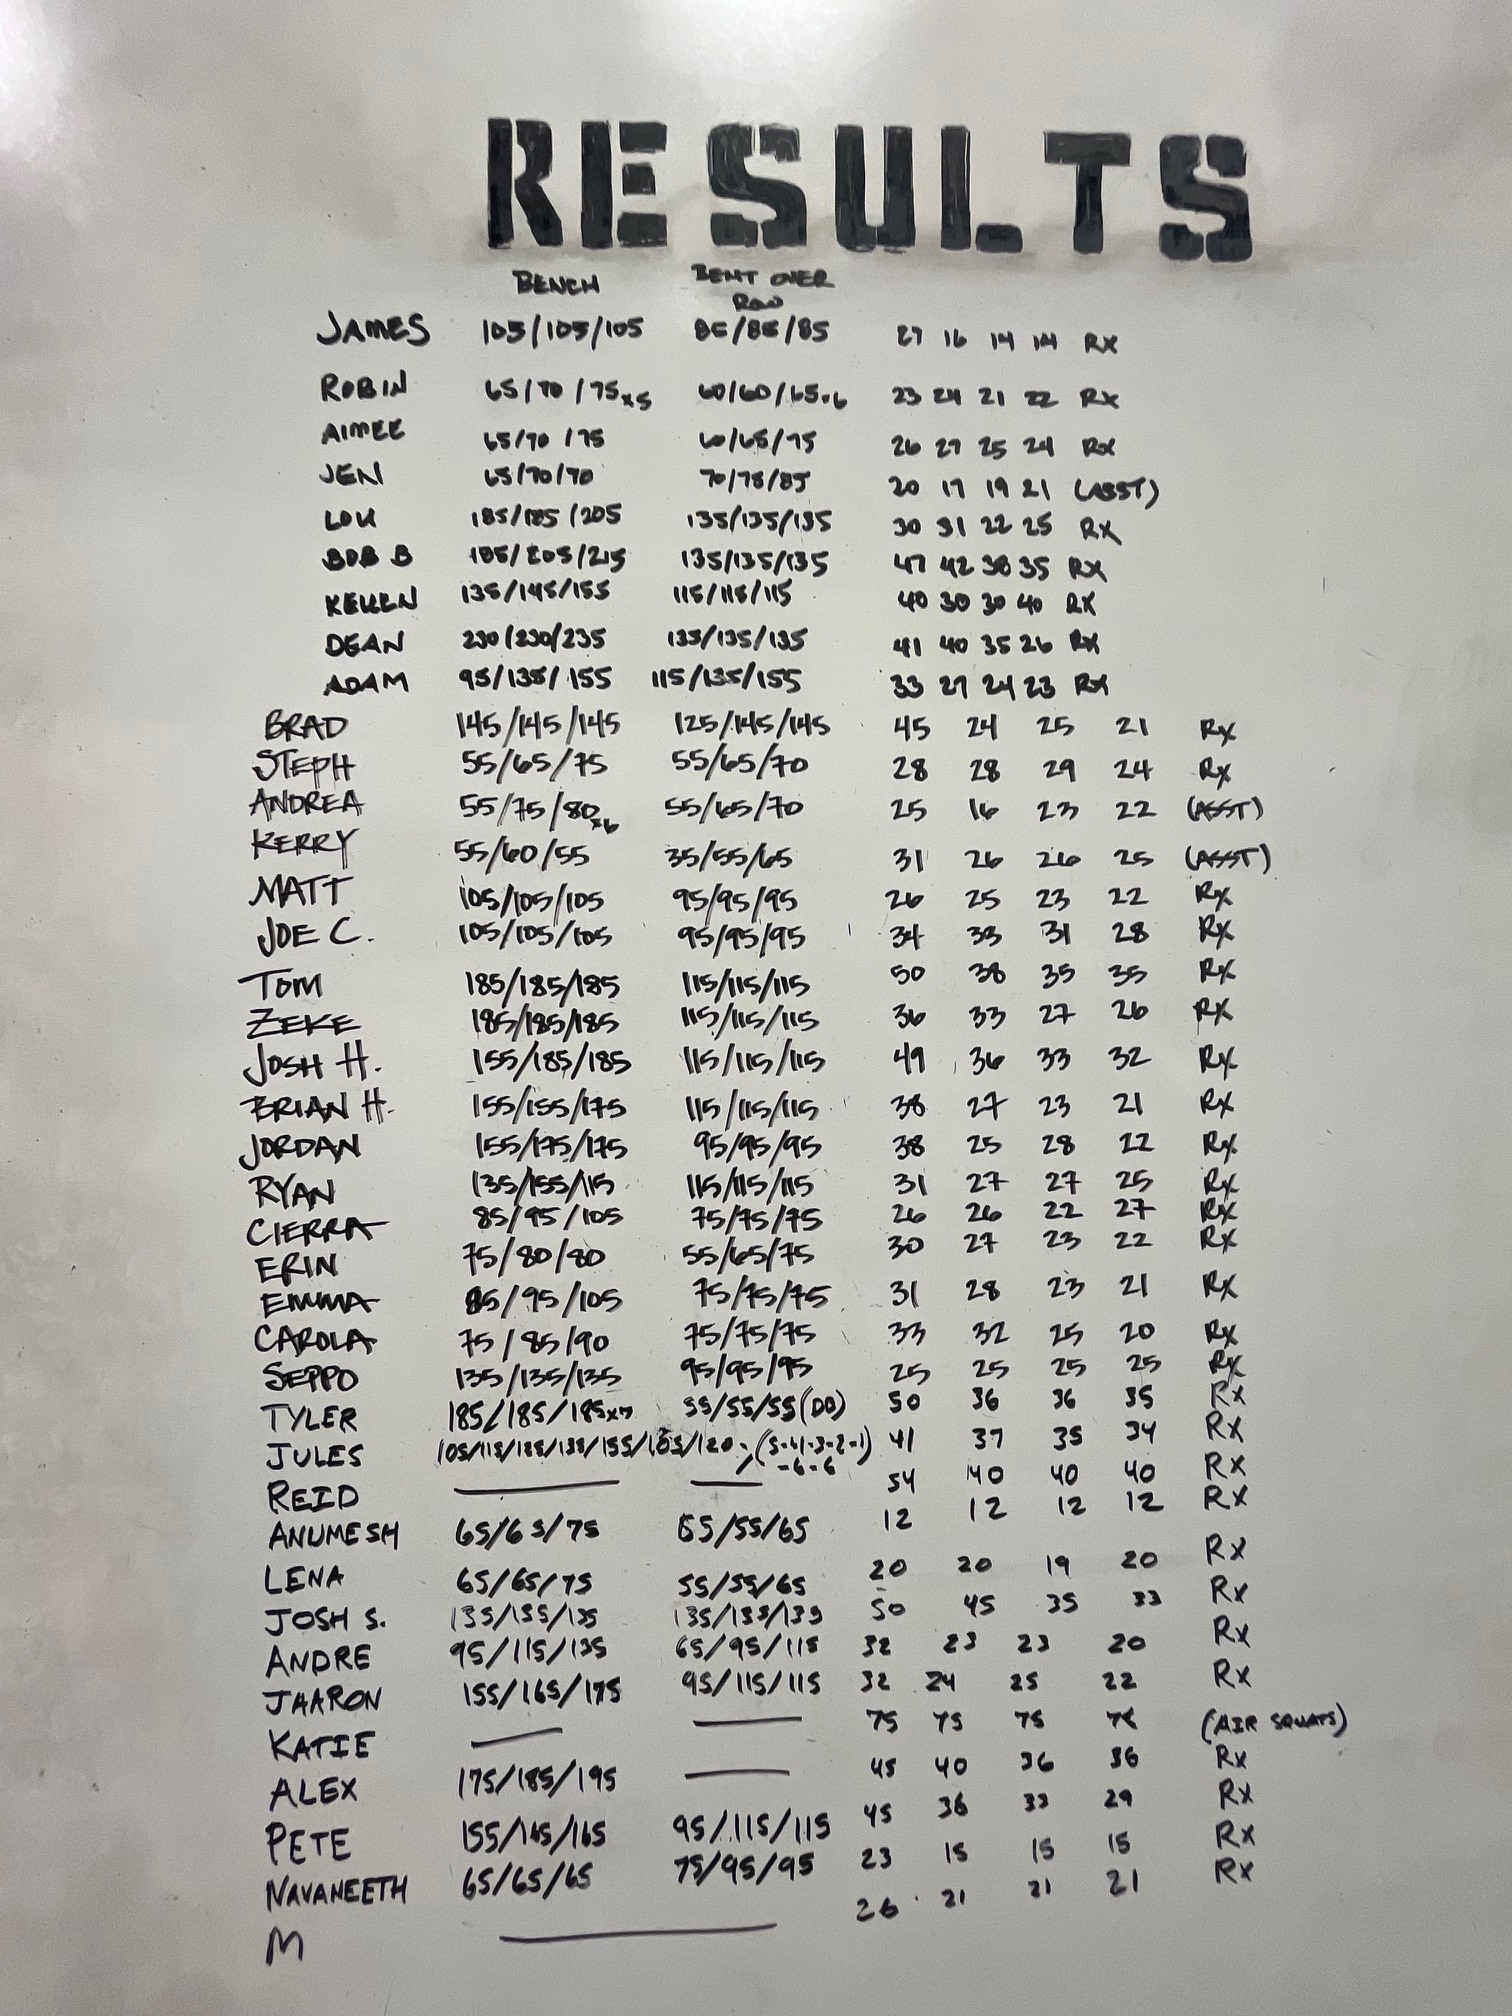 RESULTS
BENCH BENT OVER ROW
JAMES 105/105/105 85/85/85 27 16 14 14 RX
ROBIN 65/70/75x5 60/60/65x6 23 24 21 22 RX
AIMEE 65/70/75 60/65/75 26 27 25 24 RX
JEN 65/70/70 70/75/85 20 17 19 21 (ASST)
LOU 185/185/205 135/135/135 30 31 22 25 RX
BOB B 185/205/215 135/135/135 47 42 38 35 RX
KELLEN 135/145/155 115/115/115 40 30 30 40 RX
DEAN 230/230/235 135/135/135 41 40 35 26 RX
ADAM 95/135/155 115/135/155 33 27 24 23 RX
BRAD 145/145/145 125/145/145 45 24 25 21 Rx
STEPH 55/65/75 55/65/70 28 28 29 24 Rx
ANDREA 55/75/80x6 55/65/70 25 16 23 22 (ASST)
KERRY 55/60/55 35/55/65 31 26 26 25 (ASST)
MATT 105/105/105 95/95/95 26 25 23 22 Rx
JOE C. 105/105/105 95/95/95 34 33 31 28 Rx
TOM 185/185/185 115/115/115 50 38 35 35 Rx
ZEKE 185/185/185 115/115/115 36 33 27 26 Rx
JOSH H. 155/185/185 115/115/115 49 36 33 32 Rx
BRIAN H. 155/155/175 115/115/115 38 27 23 21 Rx
JORDAN 155/175/175 95/95/95 38 25 28 22 Rx
RYAN 135/155/115 115/115/115 31 27 27 25 Rx
CIERRA 85/95/105 75/75/75 26 26 22 27 Rx
ERIN 75/80/80 55/65/75 30 27 23 22 Rx
EMMA 85/95/105 75/75/75 31 28 23 21 Rx
CAROLA 75/85/90 75/75/75 33 32 25 20 Rx
SEPPO 135/135/135 95/95/95 25 25 25 25 Rx
TYLER 185/185/185x7 55/55/55(DB) 50 36 36 35 Rx
JULES 105/115/125/135/155/165/120 (5-4-3-2-1) 41 37 35 34 Rx
-6-6
REID 54 40 40 40 Rx
ANUMESH 65/65/75 55/55/65 12 12 12 12 Rx
LENA 65/65/75 55/55/65 20 20 19 20 Rx
JOSH S. 135/135/135 135/135/135 50 45 35 33 Rx
ANDRE 95/115/135 65/95/115 32 23 23 20 Rx
JAARON 155/165/175 95/115/115 32 24 25 22 Rx
KATIE 75 75 75 75 (AIR SQUATS)
ALEX 175/185/195 45 40 36 36 Rx
PETE 155/165/165 95/115/115 45 36 33 29 Rx
NAVANEETH 65/65/65 75/95/95 23 15 15 15 Rx
M 26 21 21 21 Rx